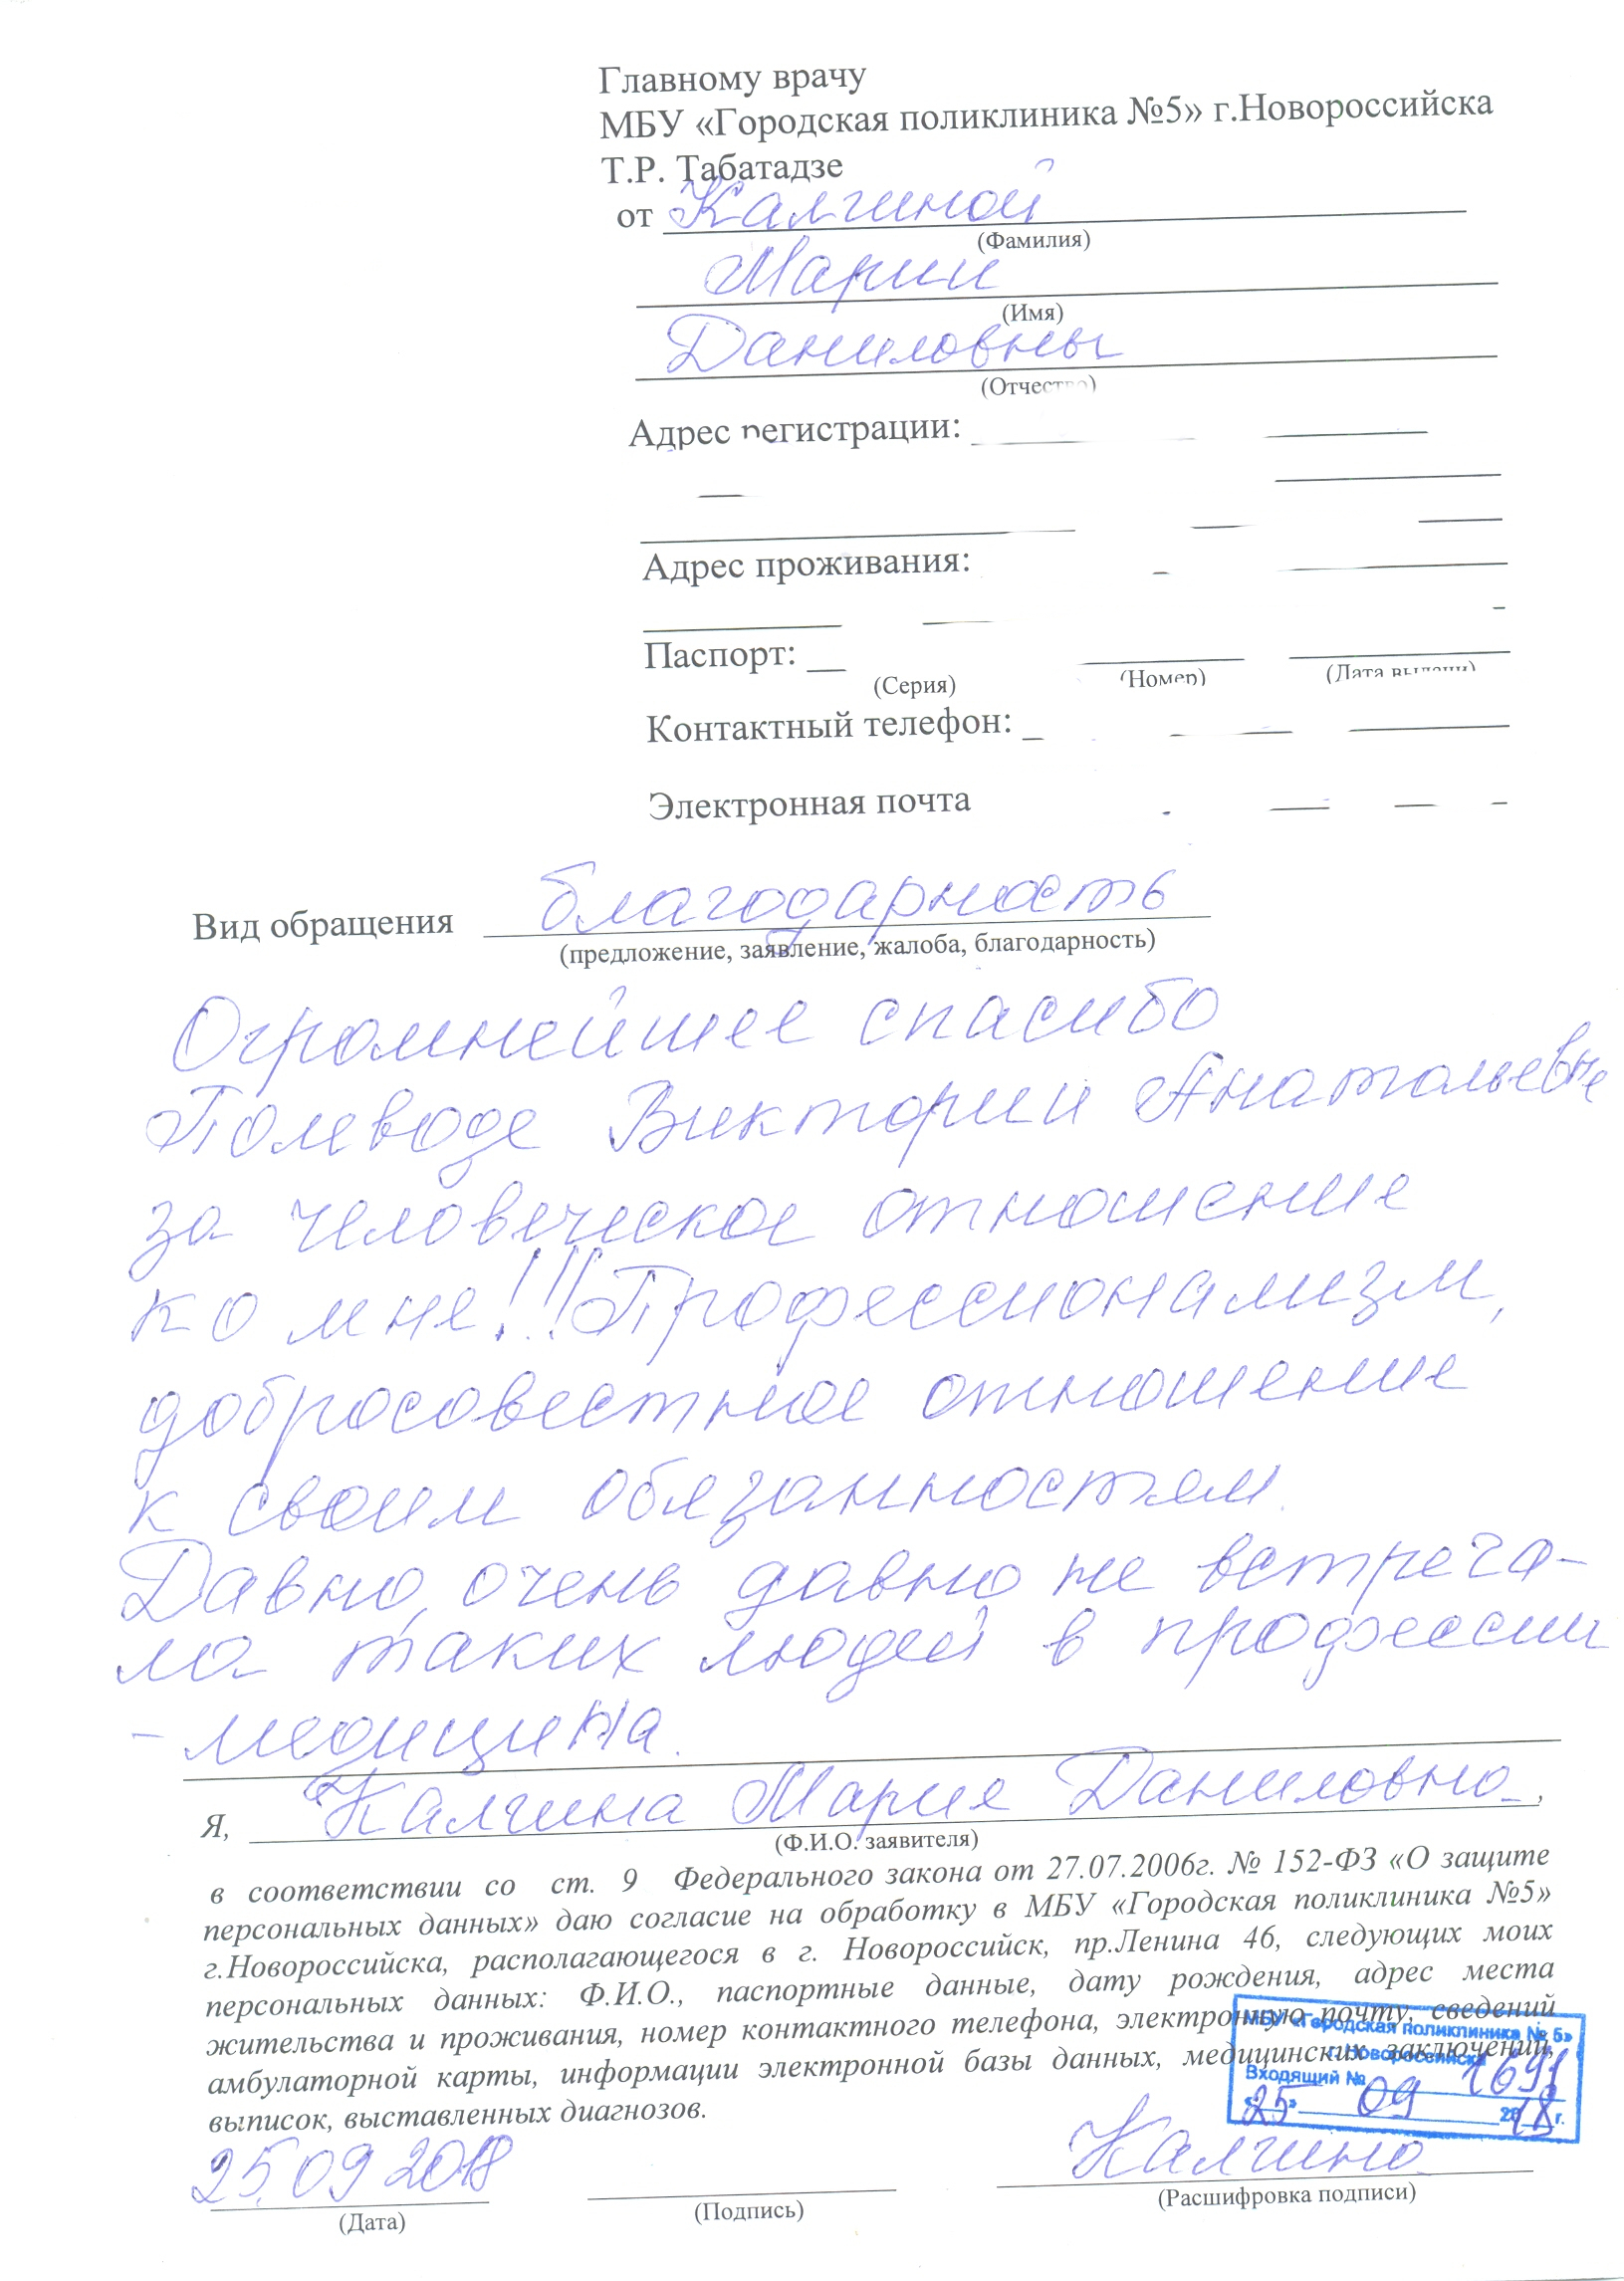 Главному врачу
МБУ «Городская поликлиника №5» г.Новороссийска
Т.Р. Табатадзе
от Калгиной
(Фамилия)
Марии
(Имя)
Даниловны
(Отчество)
Адрес регистрации:
Адрес проживания:
Паспорт:
(Серия) (Номер) (Дата выдачи)
Контактный телефон:
Электронная почта
Вид обращения благодарность
(предложение, заявление, жалоба, благодарность)
Огромнейшее спасибо
Полеводе Виктории Анатольевне
за человеческое отношение
ко мне!!! Профессионализм,
добросовестное отношение
к своим обязанностям.
Давно, очень давно не встреча-
ла таких людей в профессии
- медицина.
Я, Калгина Мария Даниловна,
(Ф.И.О. заявителя)
в соответствии со ст. 9 Федерального закона от 27.07.2006г. № 152-ФЗ «О защите
персональных данных» даю согласие на обработку в МБУ «Городская поликлиника №5»
г.Новороссийска, располагающегося в г. Новороссийск, пр.Ленина 46, следующих моих
персональных данных: Ф.И.О., паспортные данные, дату рождения, адрес места
жительства и проживания, номер контактного телефона, электронную почту, сведений
амбулаторной карты, информации электронной базы данных, медицинских заключений,
выписок, выставленных диагнозов.
МБУ «Городская поликлиника № 5»
г. Новороссийска
Входящий № 1691
«25» 09 2018 г.
25.09 2018 Калгина
(Дата) (Подпись) (Расшифровка подписи)